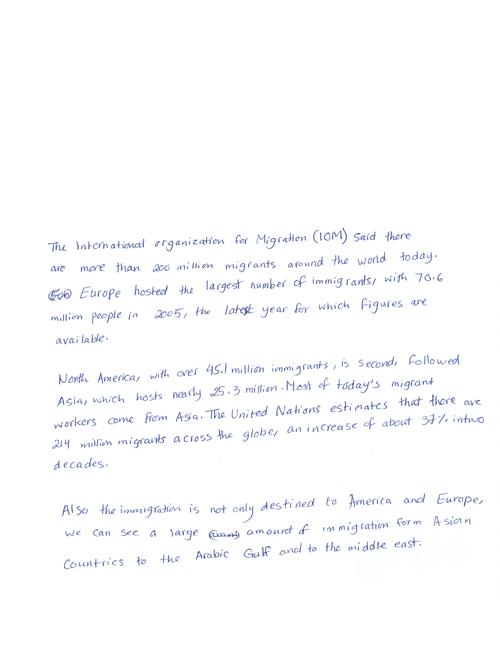 The International organization for Migration (IOM) Said there
are more than 200 million migrants around the world today.
Europe hosted the largest number of immigrants, with 70.6
million people in 2005, the latest year for which figures are
available.
North America, with over 45.1 million immigrants, is second, followed
Asia, which hosts nearly 25.3 million. Most of today's migrant
workers come from Asia. The United Nations estimates that there are
214 million migrants across the globe, an increase of about 37% in two
decades.
Also the immigration is not only destined to America and Europe,
we can see a large amount of immigration form Asian
Countries to the Arabic Gulf and to the middle east.